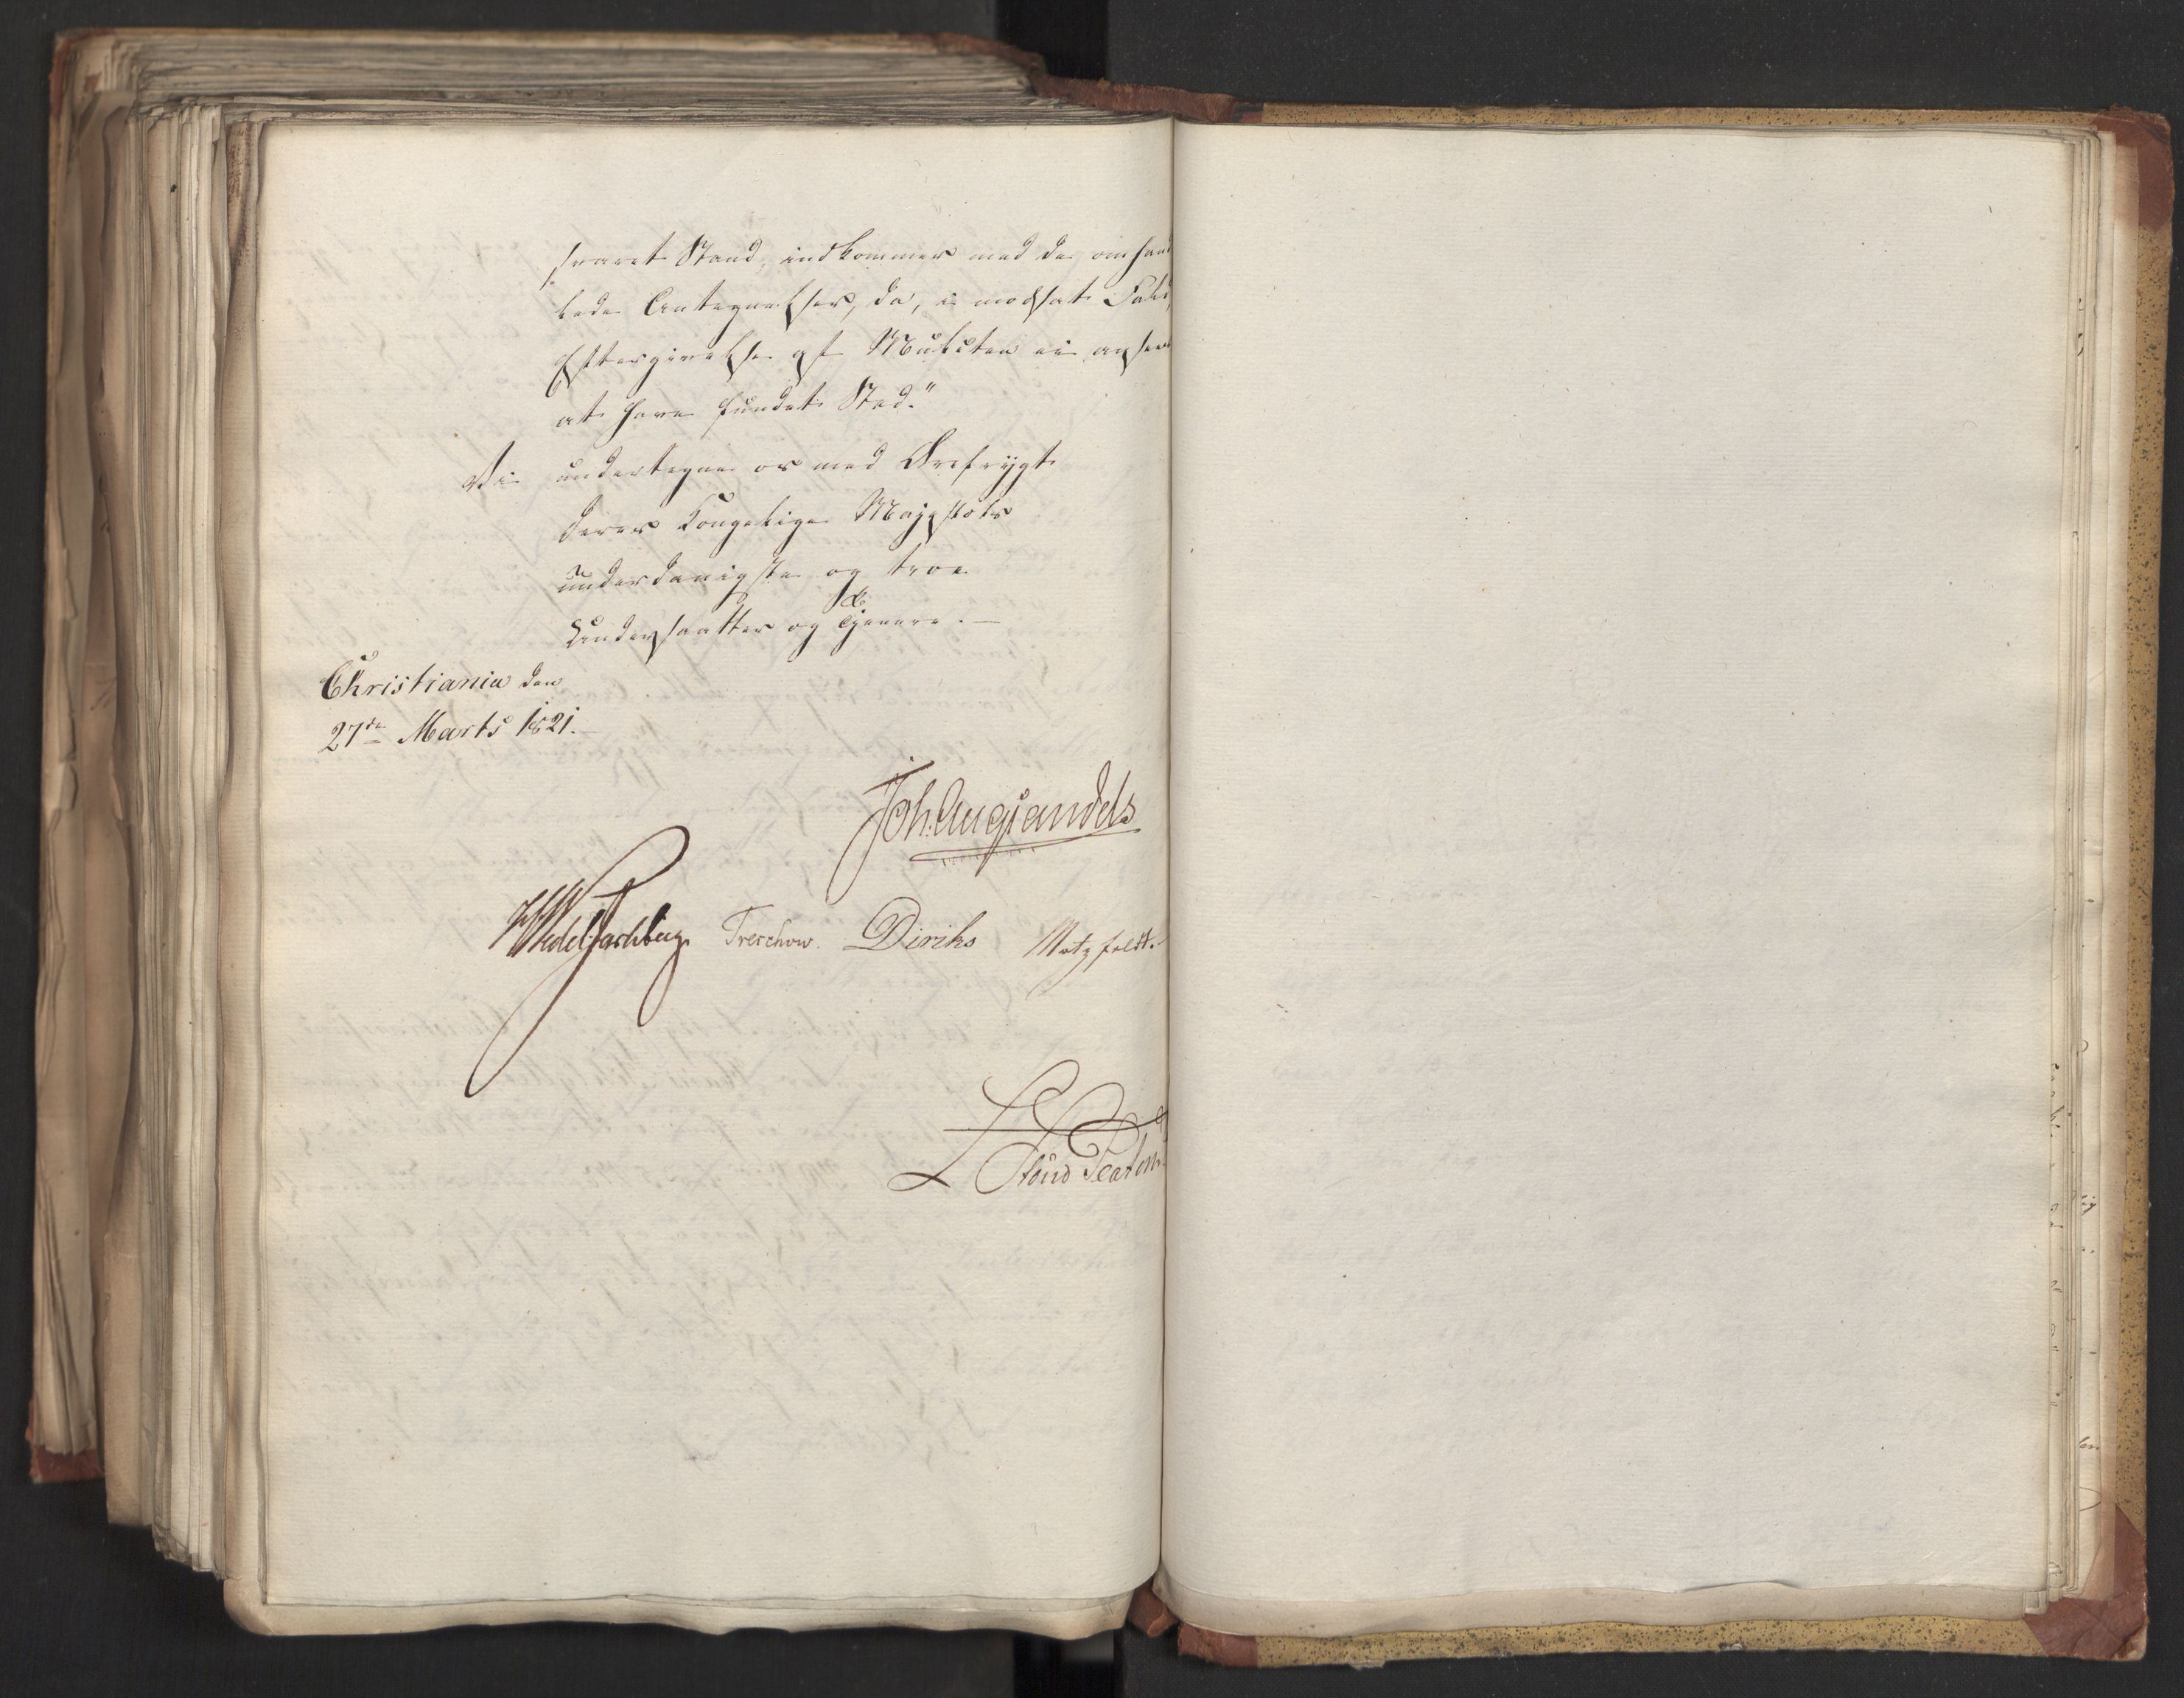 svaret Stand, indkommer med de omhand
lede Antegnelser, da, i modsat Fald,
Eftergivelse af Mulcten ei ansees
at have fundet Sted."
Vi undertegne os med Ærefrygt
Deres Kongelige Majestæts
underdanigste og troe
Undersaatter og Tjenere. —
Christiania den
27de Marts 1821.
Joh. Aug. Sandels
Wedel Jarlsberg Treschow. Diriks Motzfeldt.